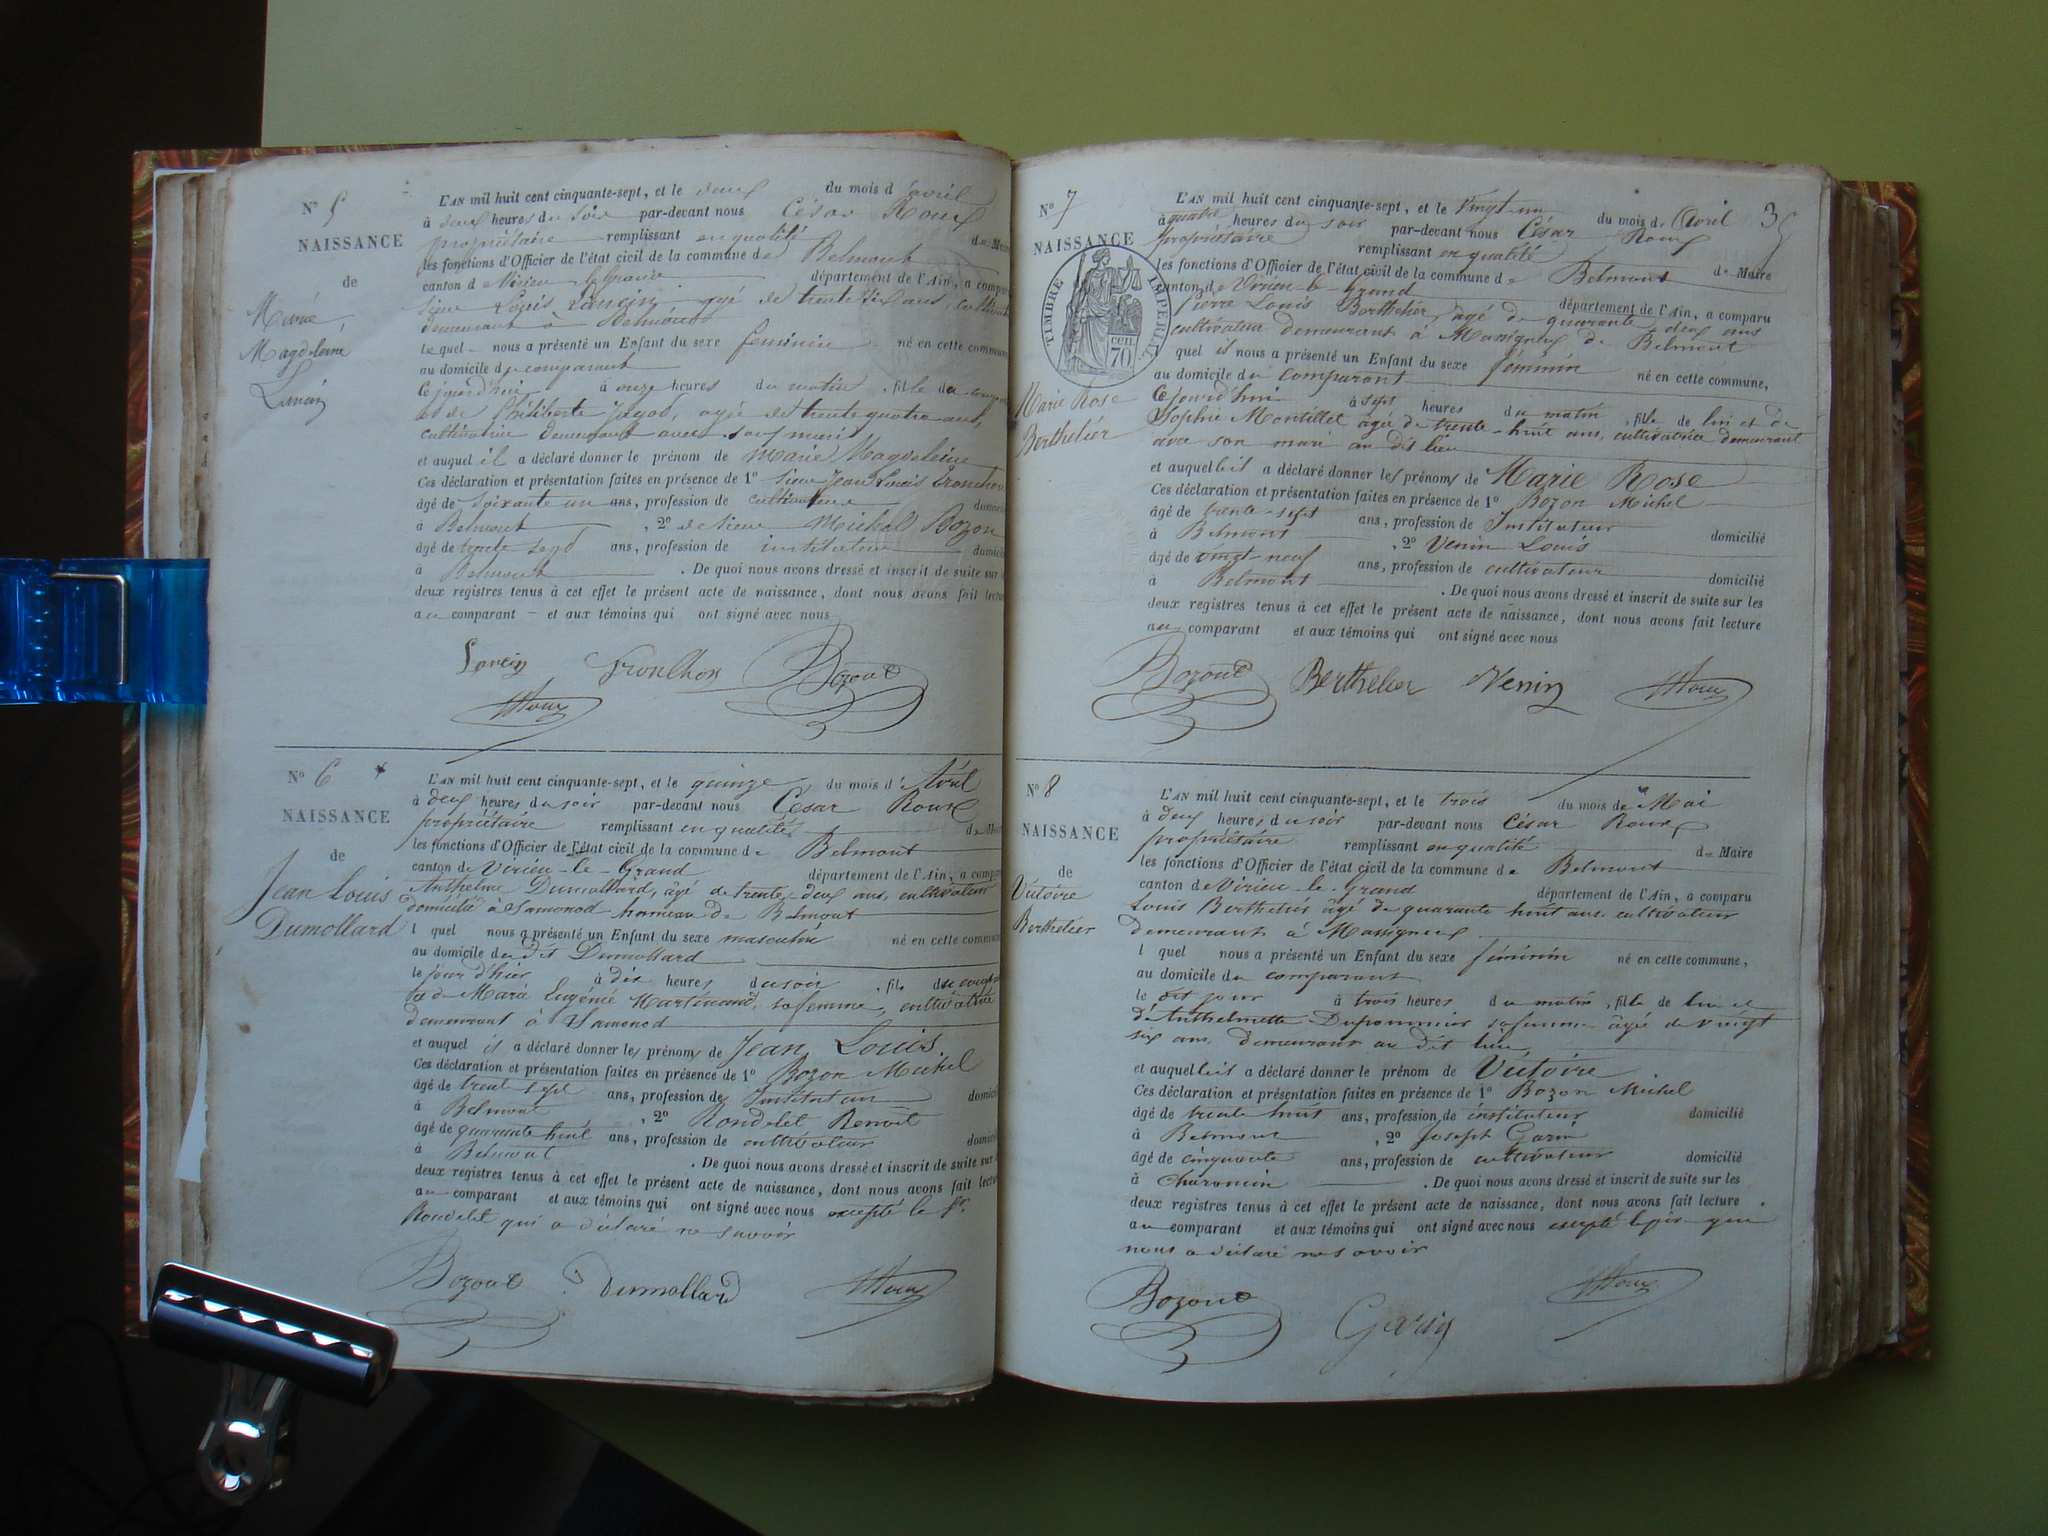 N° 5
NAISSANCE
de
Marie
Magdeleine
L'AN mil huit cent cinquante-sept, et le deux du mois d'avril
à deux heures du soir par-devant nous César Roux
propriétaire remplissant en qualité de Maire
les fonctions d'Officier de l'état civil de la commune de Belmont
canton de Virieu le Grand département de l'Ain, a comparu
sieur Louis âgé de trente ans, cultivateur
demeurant à Belmont
lequel nous a présenté un Enfant du sexe féminin né en cette commune
au domicile du comparant
Ce jourd'hui à onze heures du matin, fille du comparant
et de Philiberte âgée de trente quatre ans,
cultivatrice demeurant avec son mari
et auquel il a déclaré donner le prénom de Marie Magdeleine
Ces déclaration et présentation faites en présence de 1° sieur Jean Louis Tronchon
âgé de soixante un ans, profession de cultivateur
à Belmont, 2° de sieur Michel Bozon
âgé de trente sept ans, profession de instituteur
à Belmont. De quoi nous avons dressé et inscrit de suite sur
deux registres tenus à cet effet le présent acte de naissance, dont nous avons fait lecture
au comparant et aux témoins qui ont signé avec nous
Tronchon Bozon
Roux
N° 6
NAISSANCE
de
Jean Louis
Dumollard
L'AN mil huit cent cinquante-sept, et le quinze du mois d'Avril
à deux heures du soir par-devant nous César Roux
propriétaire remplissant en qualité de Maire
les fonctions d'Officier de l'état civil de la commune de Belmont
canton de Virieu-le-Grand département de l'Ain, a comparu
Anthelme Dumollard, âgé de trente deux ans, cultivateur
domicilié à Samonod hameau de Belmont
l quel nous a présenté un Enfant du sexe masculin né en cette commune
au domicile du dit Dumollard
le jour d'hier à dix heures du soir, fils du comparant
et de Marie Eugénie sa femme, cultivatrice
demeurant à Samonod
et auquel il a déclaré donner les prénoms de Jean Louis
Ces déclaration et présentation faites en présence de 1° Bozon Michel
âgé de trent sept ans, profession de Instituteur
à Belmont, 2° Rondelet Benoit
âgé de quarante huit ans, profession de cultivateur
à Belmont. De quoi nous avons dressé et inscrit de suite sur
deux registres tenus à cet effet le présent acte de naissance, dont nous avons fait lecture
au comparant et aux témoins qui ont signé avec nous excepté le Sr
Rondelet qui a déclaré ne savoir
Bozon Dumollard Roux
35
N° 7
NAISSANCE
TIMBRE IMPERIAL
CEN. 70
Marie Rose
Berthelier
L'AN mil huit cent cinquante-sept, et le Vingt-un du mois de Avril
à quatre heures du soir par-devant nous César Roux
propriétaire remplissant en qualité de Maire
les fonctions d'Officier de l'état civil de la commune de Belmont
canton de Virieu-le-Grand département de l'Ain, a comparu
Louis Berthelier, âgé de quarante deux ans
cultivateur demeurant à Massigneu de Belmont
quel il nous a présenté un Enfant du sexe féminin né en cette commune,
au domicile du comparant
Ce jourd'hui à sept heures du matin, fille de lui et de
Sophie Montillet âgée de trente-huit ans, cultivatrice demeurant
avec son mari au dit lieu
et auquel il a déclaré donner les prénoms de Marie Rose
Ces déclaration et présentation faites en présence de 1° Bozon Michel
âgé de trente-sept ans, profession de Instituteur domicilié
à Belmont, 2° Venin Louis
âgé de vingt-neuf ans, profession de cultivateur domicilié
à Belmont. De quoi nous avons dressé et inscrit de suite sur les
deux registres tenus à cet effet le présent acte de naissance, dont nous avons fait lecture
au comparant et aux témoins qui ont signé avec nous
Bozon Berthelier Venin Roux
N° 8
NAISSANCE
de
Victoire
Berthelier
L'AN mil huit cent cinquante-sept, et le trois du mois de Mai
à deux heures du soir par-devant nous César Roux
propriétaire remplissant en qualité de Maire
les fonctions d'Officier de l'état civil de la commune de Belmont
canton de Virieu-le-Grand département de l'Ain, a comparu
Louis Berthelier âgé de quarante huit ans cultivateur
demeurant à Massigneu
l quel nous a présenté un Enfant du sexe féminin né en cette commune,
au domicile du comparant
le dit jour à trois heures du matin, fille de lui et
d'Anthelmette sa femme âgée de vingt
six ans, demeurant au dit lieu
et auquel il a déclaré donner le prénom de Victoire
Ces déclaration et présentation faites en présence de 1° Bozon Michel
âgé de trente huit ans, profession de instituteur domicilié
à Belmont, 2° Joseph Garin
âgé de cinquante ans, profession de cultivateur domicilié
à Charoncin. De quoi nous avons dressé et inscrit de suite sur les
deux registres tenus à cet effet le présent acte de naissance, dont nous avons fait lecture
au comparant et aux témoins qui ont signé avec nous excepté le père qui
nous a déclaré ne savoir
Bozon Garin Roux